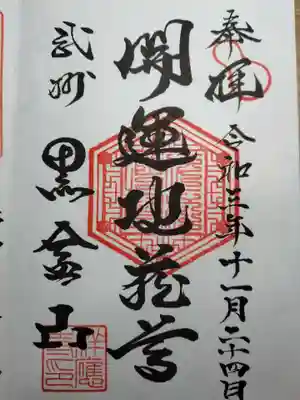 奉拝 令和三年十一月二十四日
開運地蔵尊
武州 黒金山
祥應
寺印